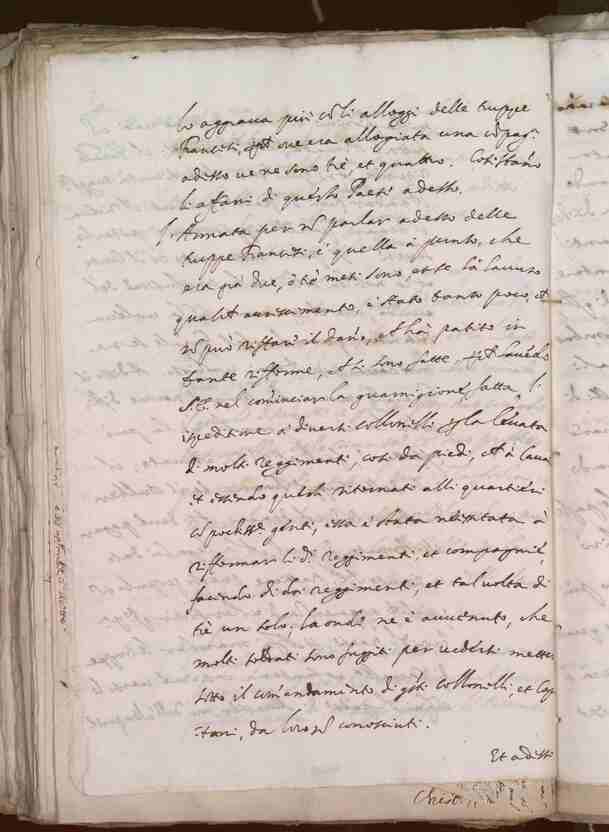 lo aggraua più cō li alloggi delle truppe
Francesi, oue era alloggiata una cōpag.
adesso ue ne sono tre, et quattro. Cosi stāno
li affari di questo Paese adesso.
L'Armata per nō parlar adesso delle
truppe Francesi, è quella à punto, che
era già due, ò tre mesi sono, et se bē hauuto
qualche accrescimento, è stato tanto poco, che
nō può ristorar il dāno, che hà patito in
tante rifforme, che si sono fatte, hauēdo
S. E. nel cominciar la guarnigione, fatta
ispeditione à diuersi collonelli la leuata
di molti reggimenti, cosi da piedi, che à caua
et essendo questi ritornati alli quartieri
cō pochiss.e genti, essa è stata nēsitata à
rifformar li dⁱ reggimenti, et compagnie,
facendo di doi reggimenti, et tal uolta di
trè un solo; la onde ne è auuenuto, che
molti soldati sono fuggiti per uedersi messi
sotto il comandamento di q̄sti collonelli, et Cap
itani, da loro nō conosciuti.
Et adesso